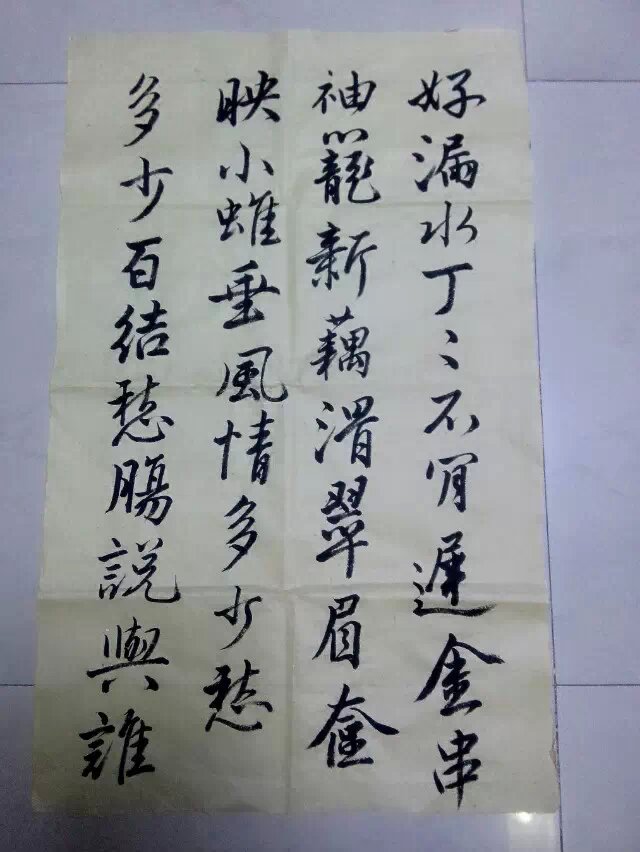 好漏水丁〻不肎遲金串
袖籠新藕滑翠眉奩
映小蜼垂風情多少愁
多少百結愁腸說與誰